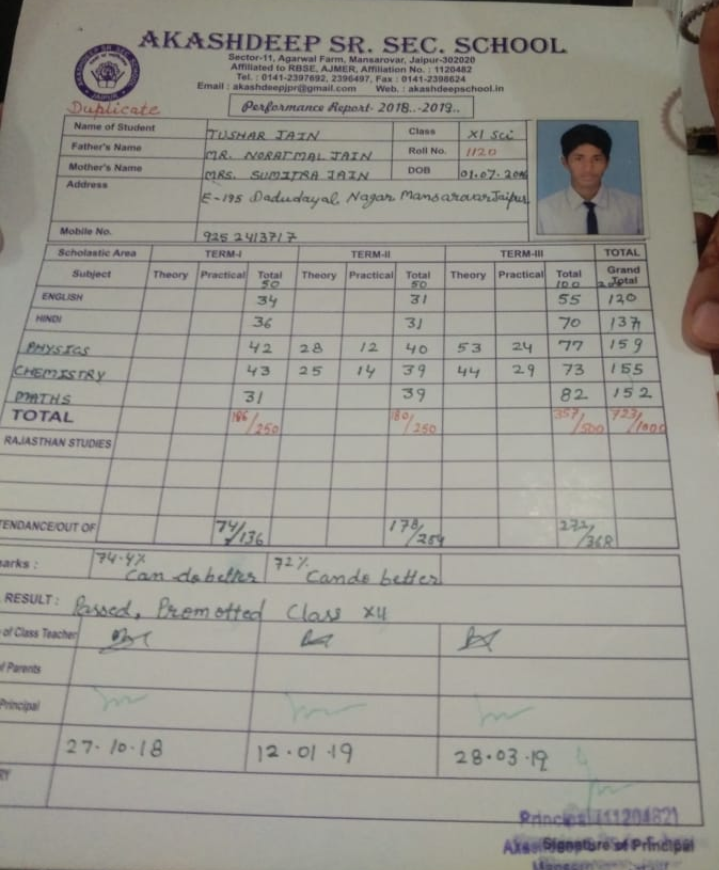 AKASHDEEP SR. SEC. SCHOOL
Sector-11, Agarwal Farm, Mansarovar, Jaipur-302020
Affiliated to RBSE, AJMER, Affiliation No. : 1120482
Tel. : 0141-2397692, 2396497, Fax : 0141-2398624
Email : akashdeepjpr@gmail.com Web. : akashdeepschool.in
Duplicate
Performance Report- 2018..-2019..
Name of Student TUSHAR JAIN Class XI Sci
Father's Name MR. NORATMAL JAIN Roll No. 1120
Mother's Name MRS. SUMITRA JAIN DOB 01.07.
Address E-195 Dadudayal Nagar Mansarovar Jaipur
Mobile No. 925 2413717
Scholastic Area TERM-I TERM-II TERM-III TOTAL
Subject Theory Practical Total 50 Theory Practical Total 50 Theory Practical Total 100 Grand Total
ENGLISH 34 31 55 120
HINDI 36 31 70 137
PHYSICS 42 28 12 40 53 24 77 159
CHEMISTRY 43 25 14 39 44 29 73 155
MATHS 31 39 82 152
TOTAL 186/250 180/250 357/500 723/1000
RAJASTHAN STUDIES
TENDANCE/OUT OF 74/136 178/254 272/368
arks : 74.4% Can do better 72% Can do better
RESULT : Passed, Promotted Class XII
of Class Teacher
of Parents
Principal
27.10.18 12.01.19 28.03.19
RY
Principal
Signature of Principal